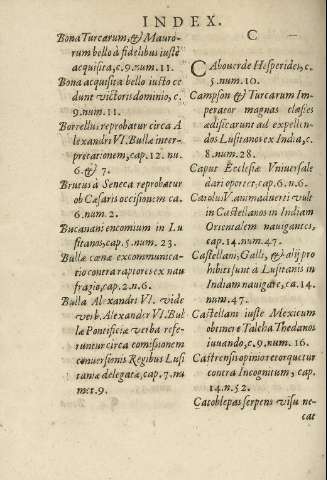 INDEX.
Bona Turcarum, & Mauro-
rum bello à fidelibus iustè
acquisita, c. 9. num. 11.
Bona acquisita bello iusto ce
dunt victoris dominio, c.
9. num. 11.
Borrellus reprobatur circa A
lexandri VI. Bullæ inter-
pretationem, cap. 12. nu.
6. & 7.
Brutus à Seneca reprobatur
ob Cæsaris occisionem ca.
6. num. 2.
Bucanani encomium in Lu
sitanos, cap. 5. num. 23.
Bullæ cœnæ excommunica-
tio contra raptores ex nau
fragio, cap. 2. n. 6.
Bulla Alexandri VI. vide
verb. Alexander VI. Bul
læ Pontificiæ verba refe-
runtur circa comissionem
conuersionis Regibus Lusi
taniæ delegatæ, cap. 7. nu
mer. 9.
C
CAbouerde Hesperides, c.
5. num. 10.
Campson & Turcarum Im-
perator magnas classes
ædificarunt ad expellen-
dos Lusitanos ex India, c.
8. num. 28.
Caput Ecclesiæ Vniuersale
dari oportet, cap. 6. n. 6.
Carolus V. animaduerti vult
in Castellanos in Indiam
Orientalem nauigantes,
cap. 14. num. 47.
Castellani, Galli, & alij pro
hibiti sunt à Lusitanis in
Indiam nauigare, ca. 14.
num. 47.
Castellani iuste Mexicum
obtinere Talcha Thedanos
iuuando, c. 9. num. 16.
Castrensis opinio retorquetur
contra Incognitum, cap.
14. n. 52.
Catoblepas serpens visu ne-
cat